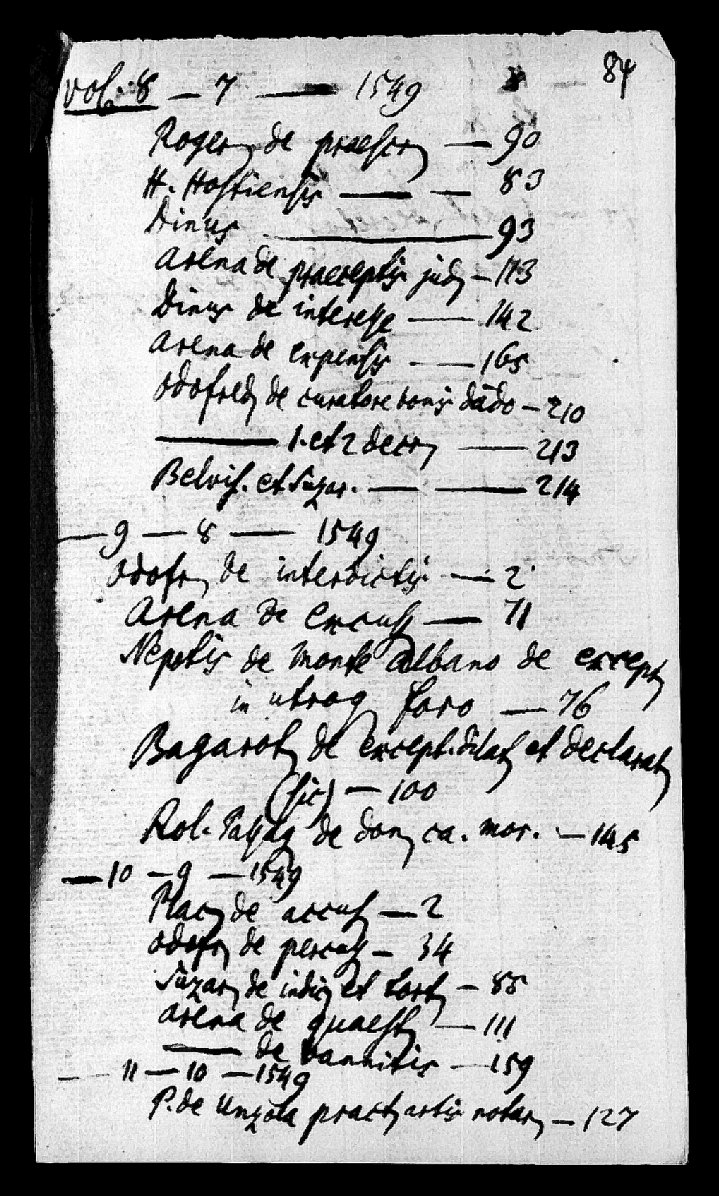 84
vol. 8 — 7 — 1549
Roger, de praescr, — 90
H. Hostiensis — — 83
Dinus — 93
Arena de praeceptis jud, — 113
Dinus de interesse — 142
Arena de expensis — 165
Odofred, de curatore bonis dādo — 210
— 1. et 2 decr, — 213
Belvis. et Suzar. — — 214
— 9 — 8 — 1549
Odofr, de interdictis — 2
Arena de excuss, — 71
Nepotis de Monte Albano de except,
in utroq, foro — 76
Bagarot, de except. dilat, et declarat,
(sic) — 100
Rol. Passag, de don, ca. mor. — 145
— 10 — 9 — 1549
Plac, de accus, — 2
Odofr, de percuss, — 34
Suzar, de indic, et tort, — 88
Arena de quaest, — 111
— de bannitis — 159
— 11 — 10 — 1549
P. de Unzola pract, artis notar, — 127